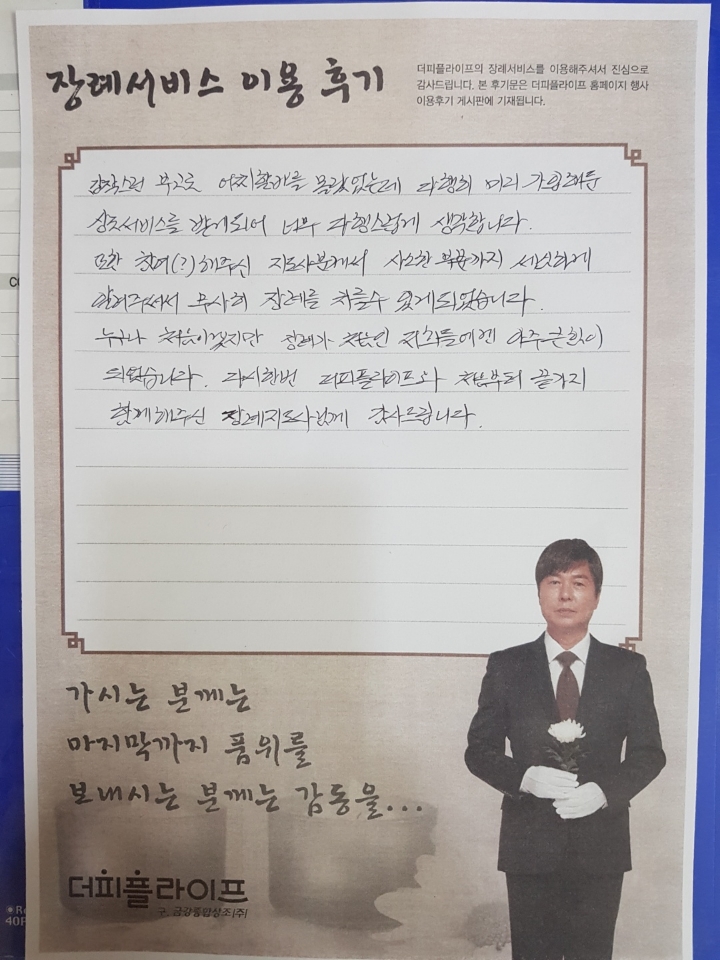 장례서비스 이용 후기
더피플라이프의 장례서비스를 이용해주셔서 진심으로
감사드립니다. 본 후기문은 더피플라이프 홈페이지 행사
이용후기 게시판에 기재됩니다.
갑작스런 부고로 어찌할바를 몰랐었는데 다행히 미리 가입해둔
상조서비스를 받게되어 너무 다행스럽게 생각합니다.
또한 참여(?)해주신 지도사분께서 사소한 부분까지 세심하게
알려주셔서 무사히 장례를 치를수 있게되었습니다.
누구나 처음이겠지만 장례가 처음인 저희들에겐 아주 큰 힘이
되었습니다. 다시한번 더피플라이프와 처음부터 끝까지
함께해주신 장례지도사님께 감사드립니다.
가시는 분께는
마지막까지 품위를
보내시는 분께는 감동을...
더피플라이프
구. 금강종합상조(주)
40P